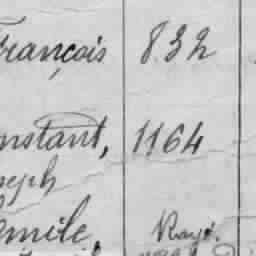 François 832
nstant, 1164
seph
mile, Rayé.